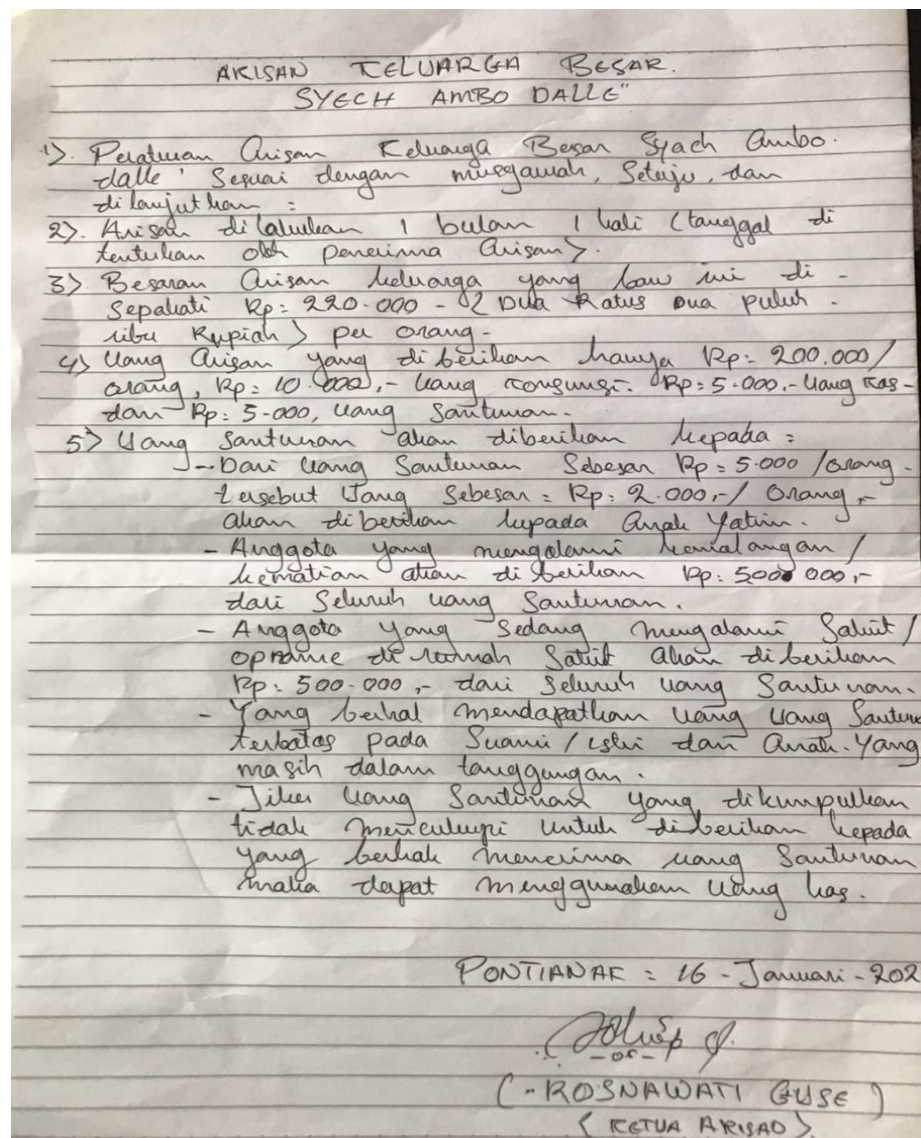 ARISAN KELUARGA BESAR.
SYECH AMBO DALLE"
1). Peraturan Arisan Keluarga Besar Syach Ambo.
dalle' Sesuai dengan musyawah, Setuju, dan
di lanjutkan :
2). Arisan dilakukan 1 bulan 1 kali (tanggal di
tentukan oleh penerima Arisan).
3). Besaran Arisan keluarga yang baru ini di -
Sepakati Rp: 220.000 - ( Dua Ratus Dua puluh.
ribu Rupiah ) per orang -
4) Uang Arisan yang di berikan hanya Rp: 200.000/
orang, Rp: 10.000,- Uang Konsumsi. Rp: 5.000.- Uang Kas -
dan Rp: 5.000, uang Santunan.
5) Uang Santunan akan diberikan kepada :
- Dari uang Santunan Sebesar Rp: 5.000 /orang -
tersebut Uang Sebesar : Rp: 2.000,-/ Orang,-
akan diberikan kepada Anak Yatim.
- Anggota yang mengalami kemalangan /
kematian akan di berikan Rp: 500 000,-
dari Seluruh uang Santunan.
- Anggota yang Sedang mengalami Sakit /
opname di rumah Sakit akan di berikan
Rp: 500.000,- dari Seluruh uang Santunan.
- Yang berhak mendapatkan uang uang Santun
terbatas pada Suami / istri dan Anak. Yang
masih dalam tanggungan.
- Jika Uang Santunan yang dikumpulkan
tidak mencukupi untuk diberikan kepada
yang berhak menerima uang Santunan
maka dapat menggunakan uang kas.
PONTIANAK : 16 - Januari - 202
(- ROSNAWATI GUSE )
( KETUA ARISAN )